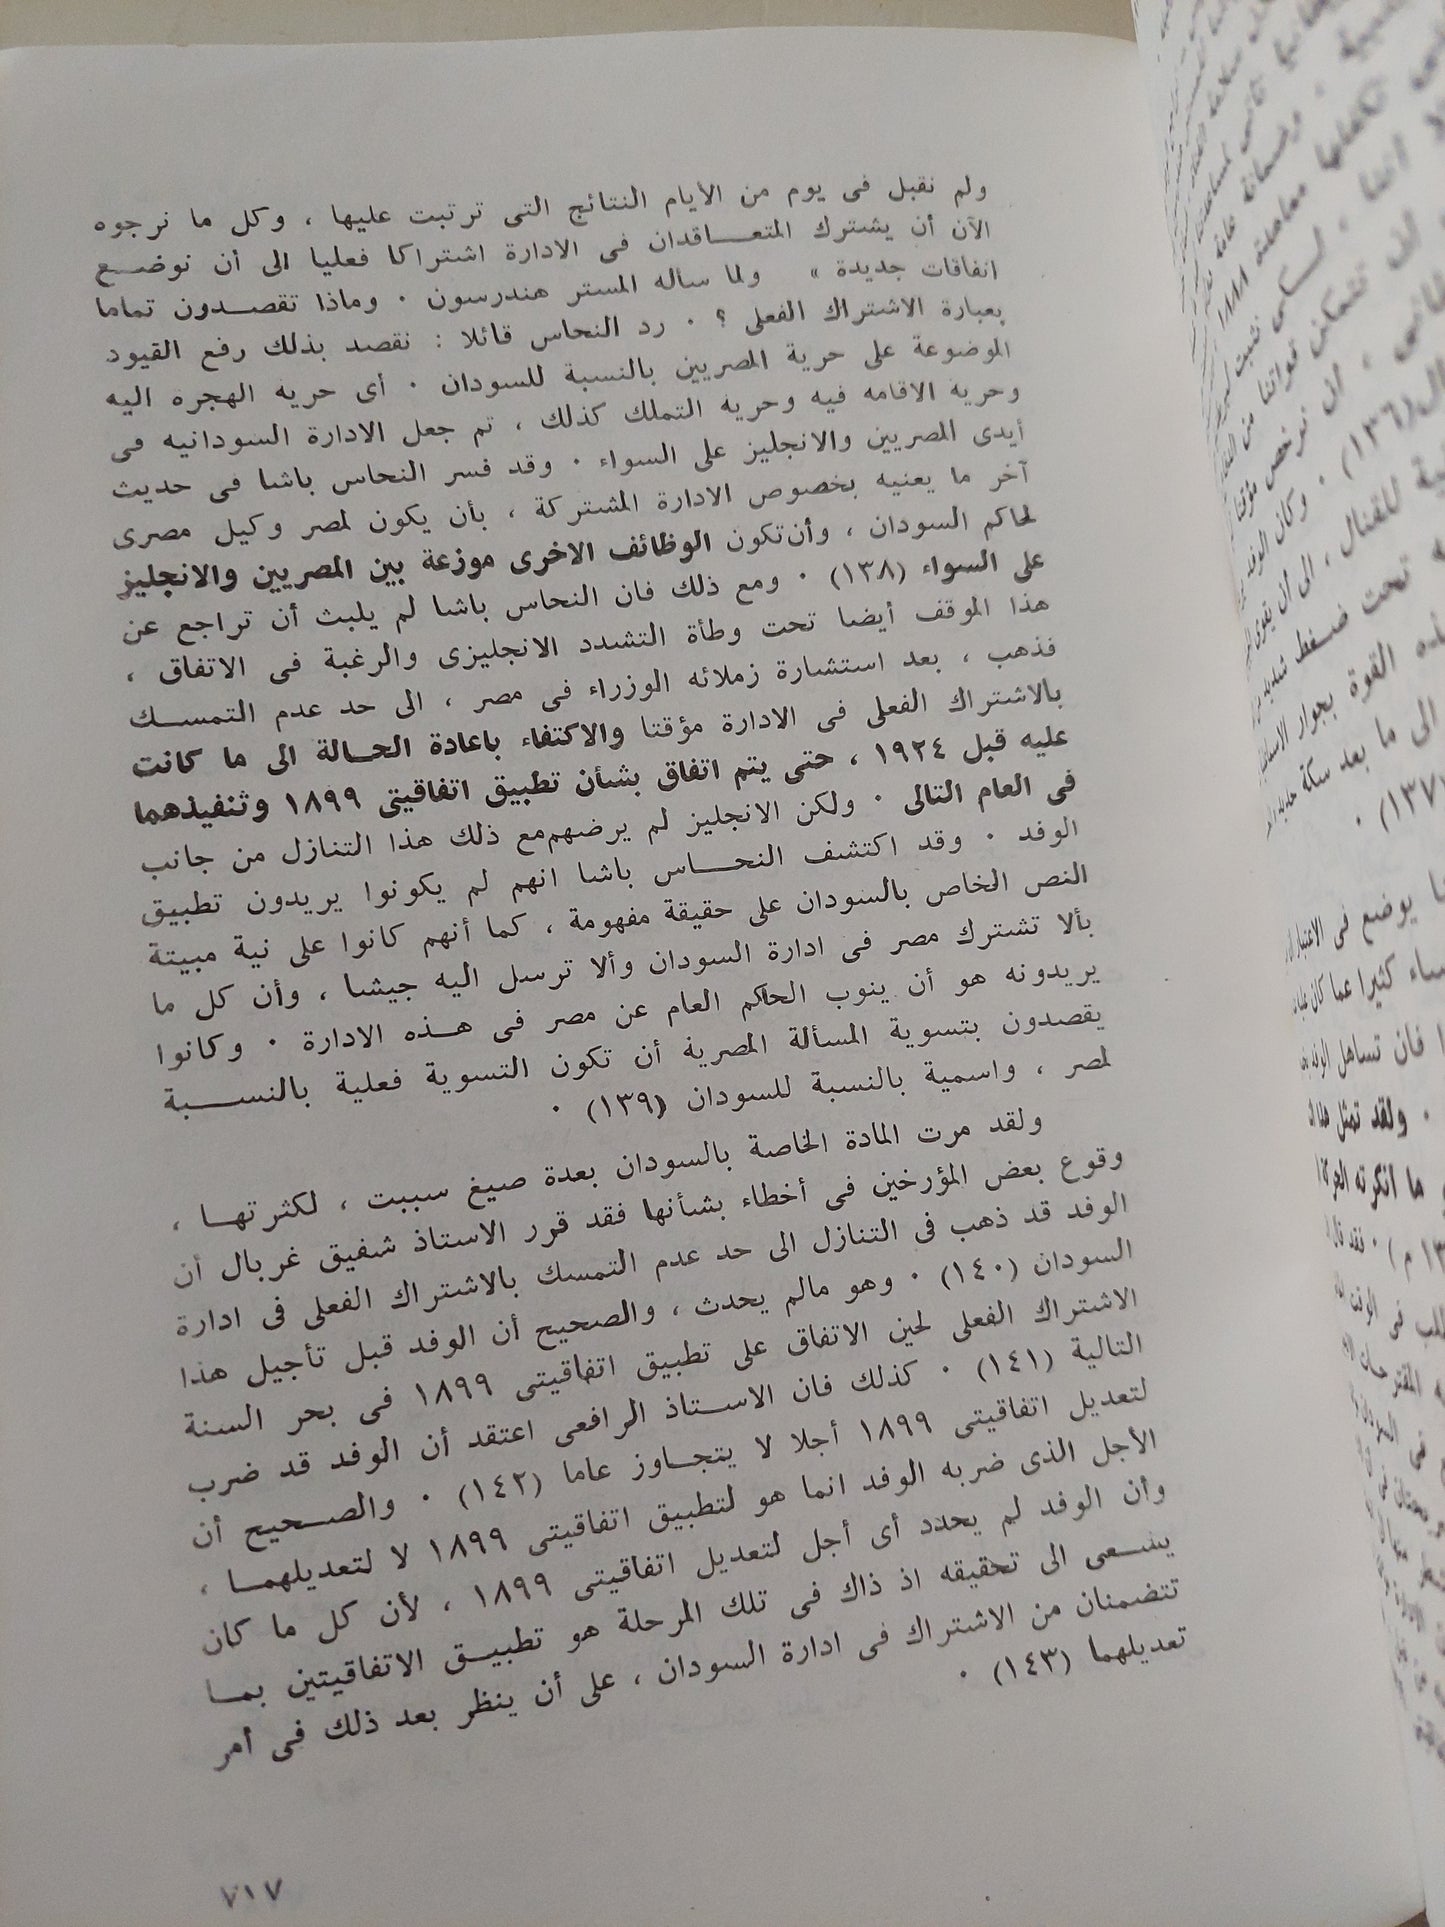 ولم نقبل فى يوم من الأيام النتائج التى ترتبت عليها ، وكل ما نرجوه
الآن أن يشترك المتعـــاقدان فى الادارة اشتراكا فعليا الى أن نوضـــع
اتفاقات جديدة » ولما سأله المستر هندرسون ٠ وماذا تقصــدون تماما
بعبارة الاشتراك الفعلى ؟ ٠ رد النحاس قائلا : نقصد بذلك رفع القيود
الموضوعة على حرية المصريين بالنسبة للسودان ٠ أى حريه الهجره اليه
وحرية الاقامه فيه وحريه التملك كذلك ، تم جعل الادارة السودانيه فى
أيدى المصريين والانجليز على السواء ٠ وقد فسر النحاس باشا فى حديث
آخر ما يعنيه بخصوص الادارة المشتركة ، بأن يكون لمصر وكيل مصرى
لحاكم السودان ، وأن تكون الوظائف الاخرى موزعة بين المصريين والانجليز
على السواء (١٣٨) ٠ ومع ذلك فان النحاس باشا لم يلبث أن تراجع عن
هذا الموقف أيضا تحت وطأة التشدد الانجليزى والرغبة فى الاتفاق ،
فذهب ، بعد استشارة زملائه الوزراء فى مصر ، الى حد عدم التمســك
بالاشتراك الفعلى فى الادارة مؤقتا والاكتفاء باعادة الحـالة الى ما كانت
عليه قبل ١٩٢٤ ، حتى يتم اتفاق بشأن تطبيق اتفاقيتى ١٨٩٩ وتنفيذهما
فى العام التالى ٠ ولكن الانجليز لم يرضهم مع ذلك هذا التنازل من جانب
الوفد ٠ وقد اكتشف النحـــاس باشا انهم لم يكونوا يريدون تطبيق
النص الخاص بالسودان على حقيقة مفهومة ، كما أنهم كانوا على نية مبيتة
بألا تشترك مصر فى ادارة السودان وألا ترسل اليه جيشا ، وأن كل ما
يريدونه هو أن ينوب الحاكم العام عن مصر فى هـــذه الادارة ٠ وكانوا
يقصدون بتسوية المسألة المصرية أن تكون التسوية فعلية بالنســـبة
لمصر ، واسمية بالنسبة للسودان (١٣٩) ٠
ولقد مرت المادة الخاصة بالسودان بعدة صيغ سببت ، لكثرتهـا ،
وقوع بعض المؤرخين فى أخطاء بشأنها فقد قرر الاستاذ شفيق غربال أن
الوفد قد ذهب فى التنازل الى حد عدم التمسك بالاشتراك الفعلى فى ادارة
السودان (١٤٠) ٠ وهو مالم يحدث ، والصحيح أن الوفد قبل تأجيل هذا
الاشتراك الفعلى لحين الاتفاق على تطبيق اتفاقيتى ١٨٩٩ فى بحر السنة
التالية (١٤١) ٠ كذلك فان الاســتاذ الرافعى اعتقد أن الوفد قد ضرب
لتعديل اتفاقيتى ١٨٩٩ أجلا لا يتجــاوز عاما (١٤٢) ٠ والصــحيح أن
الأجل الذى ضربه الوفد انما هو لتطبيق اتفاقيتى ١٨٩٩ لا لتعديلهمـا ،
وأن الوفد لم يحدد أى أجل لتعديل اتفاقيتى ١٨٩٩ ، لأن كل ما كان
يســعى الى تحقيقه اذ ذاك فى تلك المرحلة هو تطبيــق الاتفاقيتين بمــا
تتضمنان من الاشتراك فى ادارة السودان ، على أن ينظر بعد ذلك فى أمر
تعديلهما (١٤٣) ٠
٧١٧